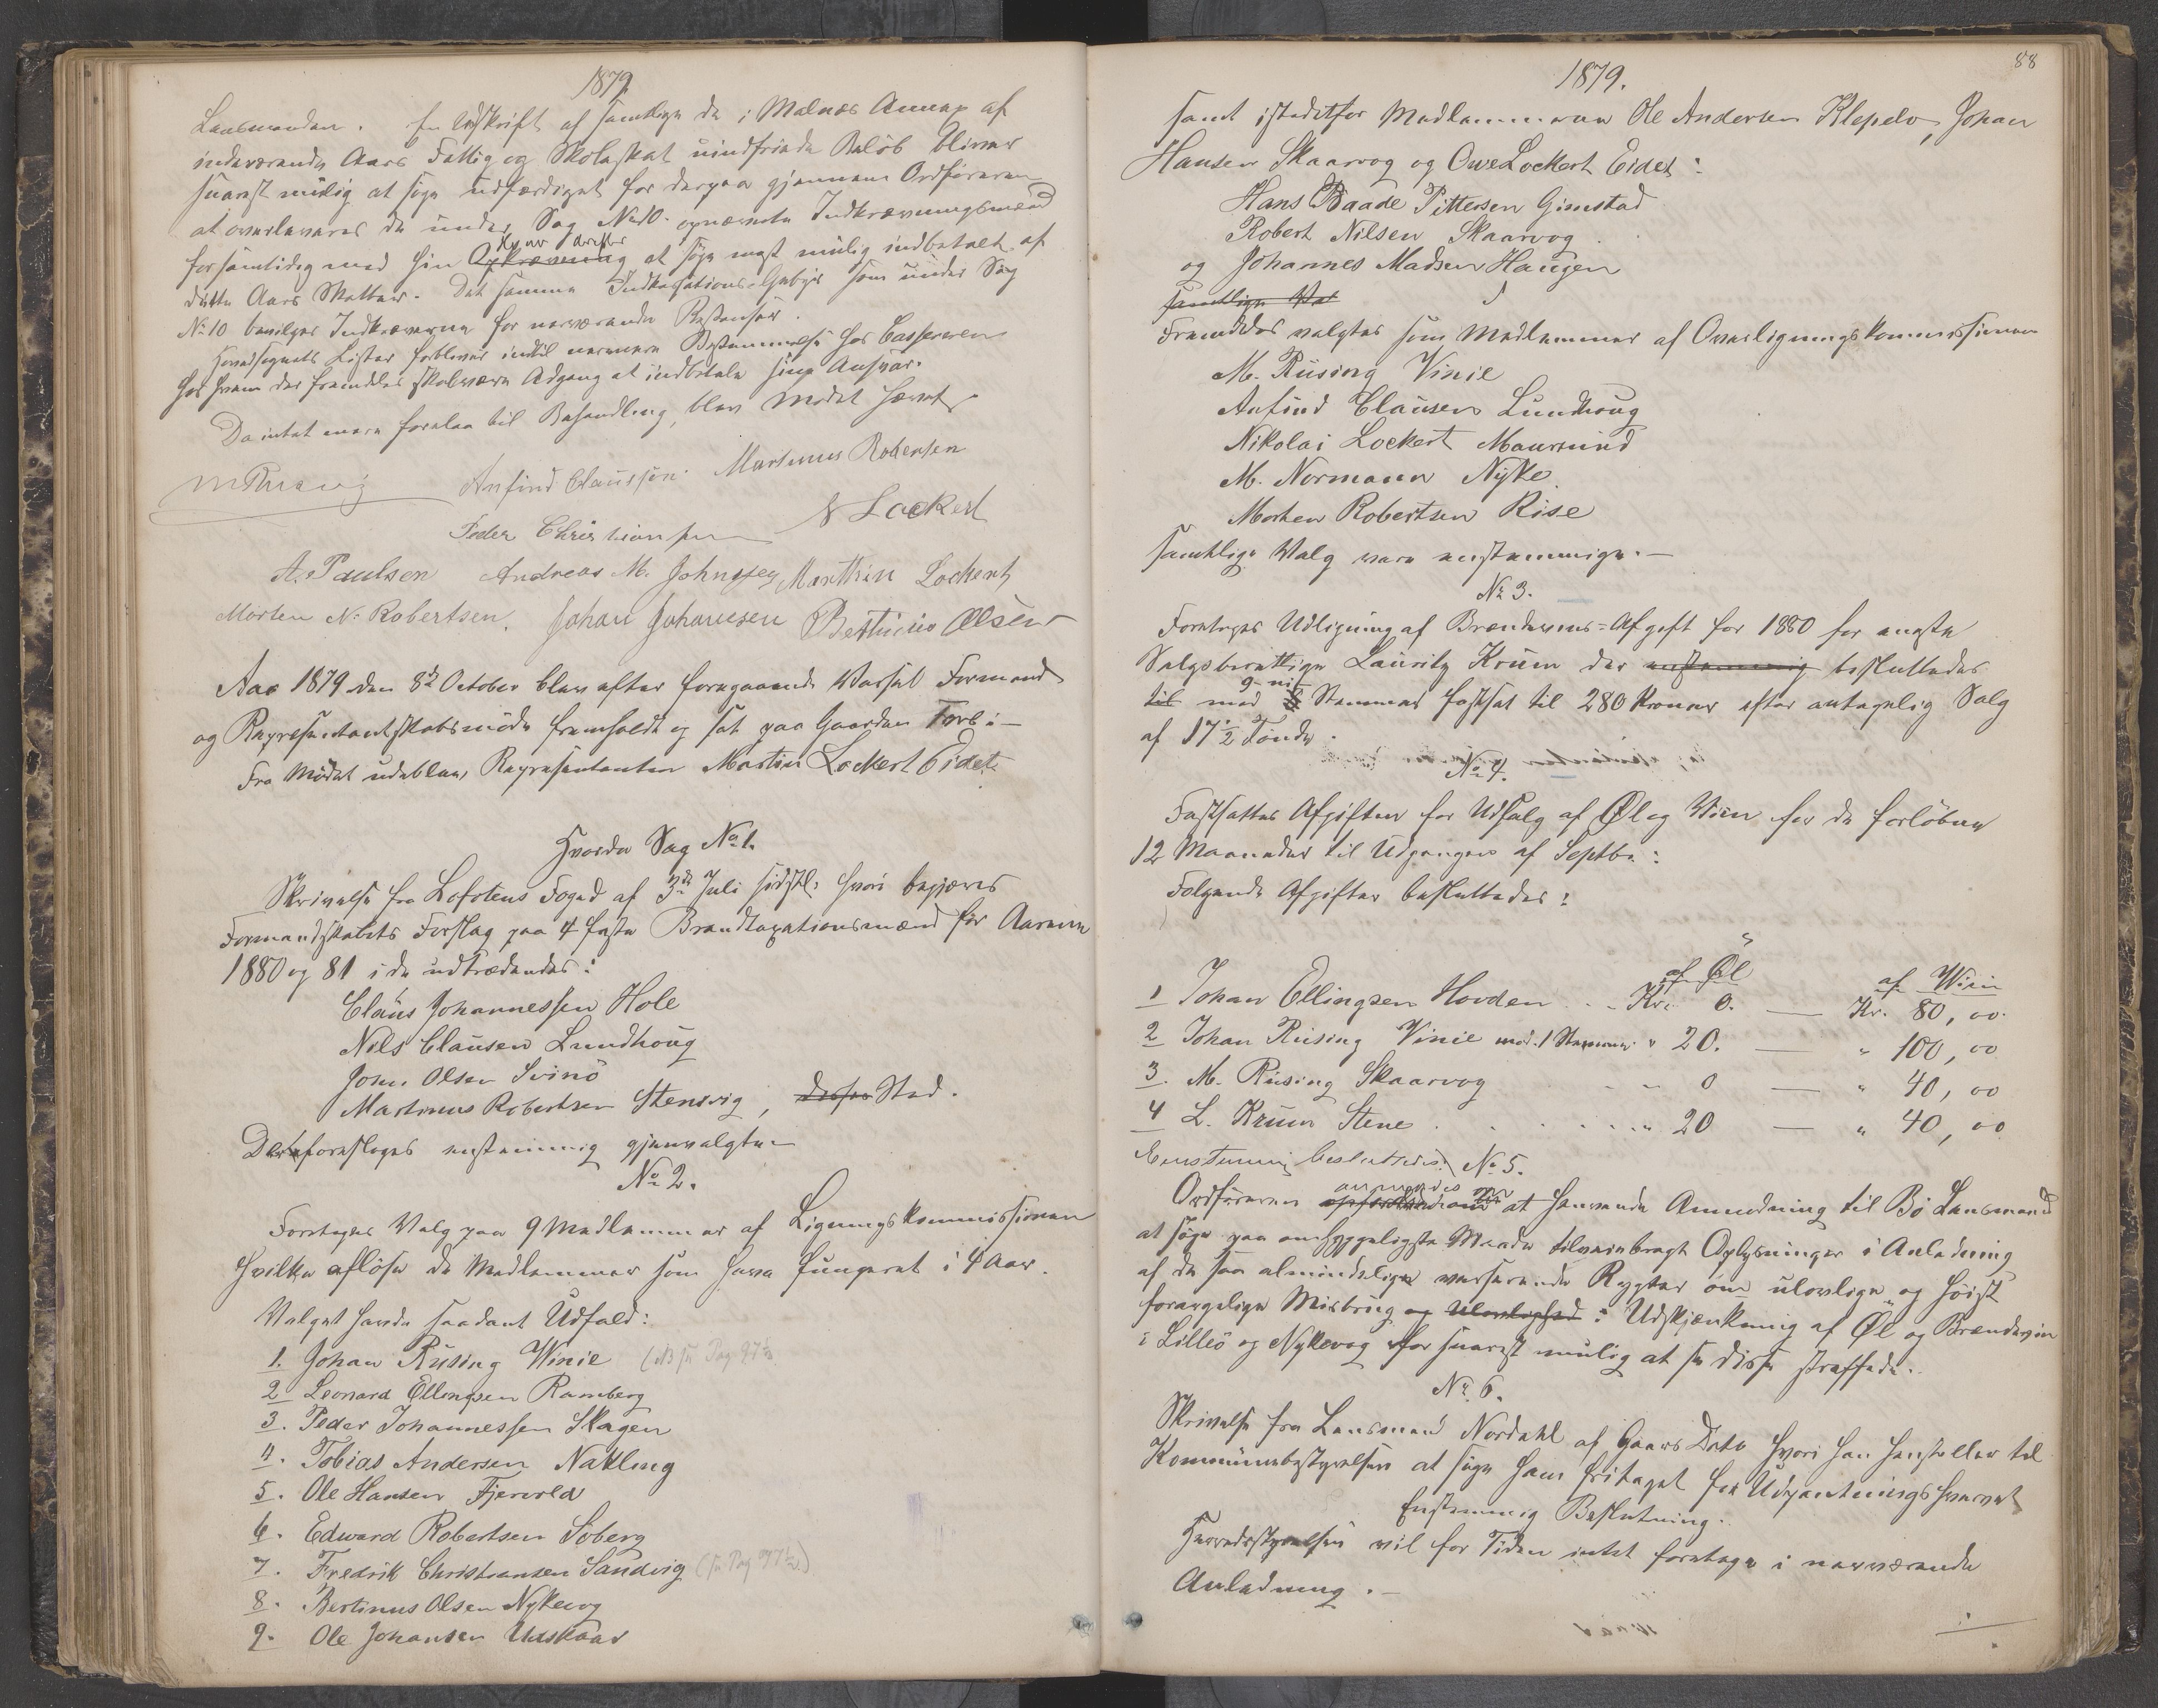 1879.
Lensmanden. En Udskrift af samtlige de i Malnes Annex af
indeværende Aars Fattig og Skoleskat uindfriede Beløb bliver
snarest mulig at søge udfærdiget for derpaa gjennem Ordføreren
at overleveres de under Sag No 10. opnævnte Indkrævningsmænd
for samtidig med sin Opkrævning at søge mest mulig indbetalt af
dette Aars Skatter. Det samme Indkassations Gebyr som under Sag
No 10 bevilges Indkræverne for nærværende Restanser.
Hovedsognets Lister forbliver indtil nærmere Bestemmelse hos Cassereren
hos hvem der fremdeles skal være Adgang at indbetale sine Ansvar.
Da intet mere forelaa til Behandling, blev Mødet hævet.
M Rusing Anfind Claussen. Martinus Robertsen
Peder Christiansen N Lockert
A. Paulsen Andreas M. Johnssen Marthin Lockert
Morten N. Robertsen. Johan Johanesen Bertinius Olsen
Aar 1879 den 8de October blev efter foregaaende Varsel Formands
og Repræsentantskabsmøde fremholdt og sat paa Gaarden Føre:
Fra Mødet udeblev Repræsentanten Martin Lockert Eidet.
Hvorda Sag No 1.
Skrivelse fra Lofotens Foged af 3de Juli sidstl. hvori begjæres
Formandskabets Forslag paa 4 faste Brandtaxationsmænd for Aarene
1880 og 81 i de udtrædendes:
Claus Johannessen Hole
Nils Clausen Lundhoug
John Olsen Svinö
Martinus Robertsen Stensvig, deres Sted.
Der foresloges enstemmig gjenvalgte.
No 2.
Foretoges Valg paa 9 Medlemmer af Ligningskommissionen
hvilke afløse de Medlemmer som have fungeret i 4 Aar.
Valget havde saadant Udfald:
1. Johan Rusing Winie (NB se Pag 97½
2 Leonard Ellingsen Ramberg
3. Peder Johannessen Skagen
4. Tobias Andersen Nakling
5. Ole Hansen Fjervold
6. Edward Robertsen Søberg
7. Fredrik Christiansen Sandvig (se Pag 97½)
8. Bertinus Olsen Nykvog
9. Ole Johansen Uvskaar
88
1879.
samt istedetfor Medlemmerne Ole Andersen Klepelv, Johan
Hansen Skaarvog og Owe Lockert Eidet:
Hans Baade Pittersen Gimstad
Robert Nilsen Skaarvog
og Johannes Madsen Haugen
samtlige Val
Fremdeles valgtes som Medlemmer af Overligningskommissionen
M. Rüsing Vinie
Anfind Clausen Lundhoug
Nikolai Lockert Maursund
M. Normann Nyke
Morten Robertsen Rise
Samtlige Valg vare enstemmige.
No 3.
Foretoges Udligning af Brændevins-Afgift for 1880 for eneste
Salgsberettige Lauritz Krum der enstemmig besluttedes
til med 9 - ni Stemmer fastsat til 280 Kroner efter antagelig Salg
af 17½ Tønde.
No 4.
Fastsattes Afgiften for Udsalg af Øl og Viin for de forløbne
12 Maaneder til Udgangen af Septbr:
Følgende Afgifter besluttedes:
af Øl af Wiin
1 Johan Ellingsen Hovden Kr. 0. — Kr. 80,00.
2 Johan Rüsing Vinie mod 1 Stemme " 20. — " 100,00
3. M. Rüsing Skaarvog 0 — " 40,00
4 L. Krum Stene " 20 — " 40,00
Eenstemmig besluttedes: No 5.
Ordføreren anmodes om at henvende Anmodning til Bø Lensmand
at søge paa omhyggeligste Maade tilveiebragt Oplysninger i Anledning
af de saa almindelige verserende Rygter om ulovlige og høist
forargelige Misbrug og Ulovlighed i Udskjænkning af Øl og Brændevin
i Lilleö og Nykvog for snarest mulig at se disse straffede.
No 6.
Skrivelse fra Lensmand Nordahl af Gaars Dato hvori han henstiller til
Kommunebestyrelsen at søge ham fritaget for Udpantningshvervet
Enstemmig Beslutning.
Herredsstyrelsen vil for Tiden intet foretage i nærværende
Anledning.